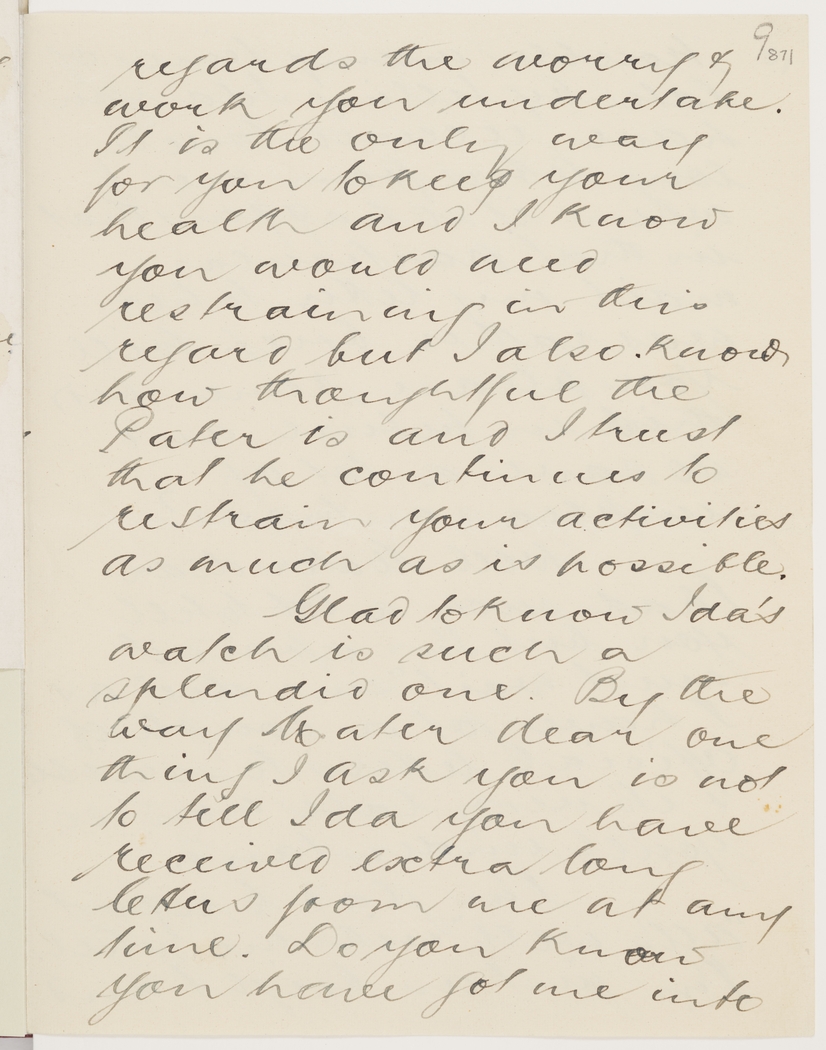 9
871
regards the worry &
work you undertake.
It is the only way
for you to keep your
health and I know
you would need
restraining in this
regard but I also know
how thoughtful the
Pater is and I trust
that he continues to
restrain your activities
as much as is possible.
Glad to know Ida's
watch is such a
splendid one. By the
way Mater dear one
thing I ask you is not
to tell Ida you have
received extra long
letters from me at any
time. Do you know
you have got me into